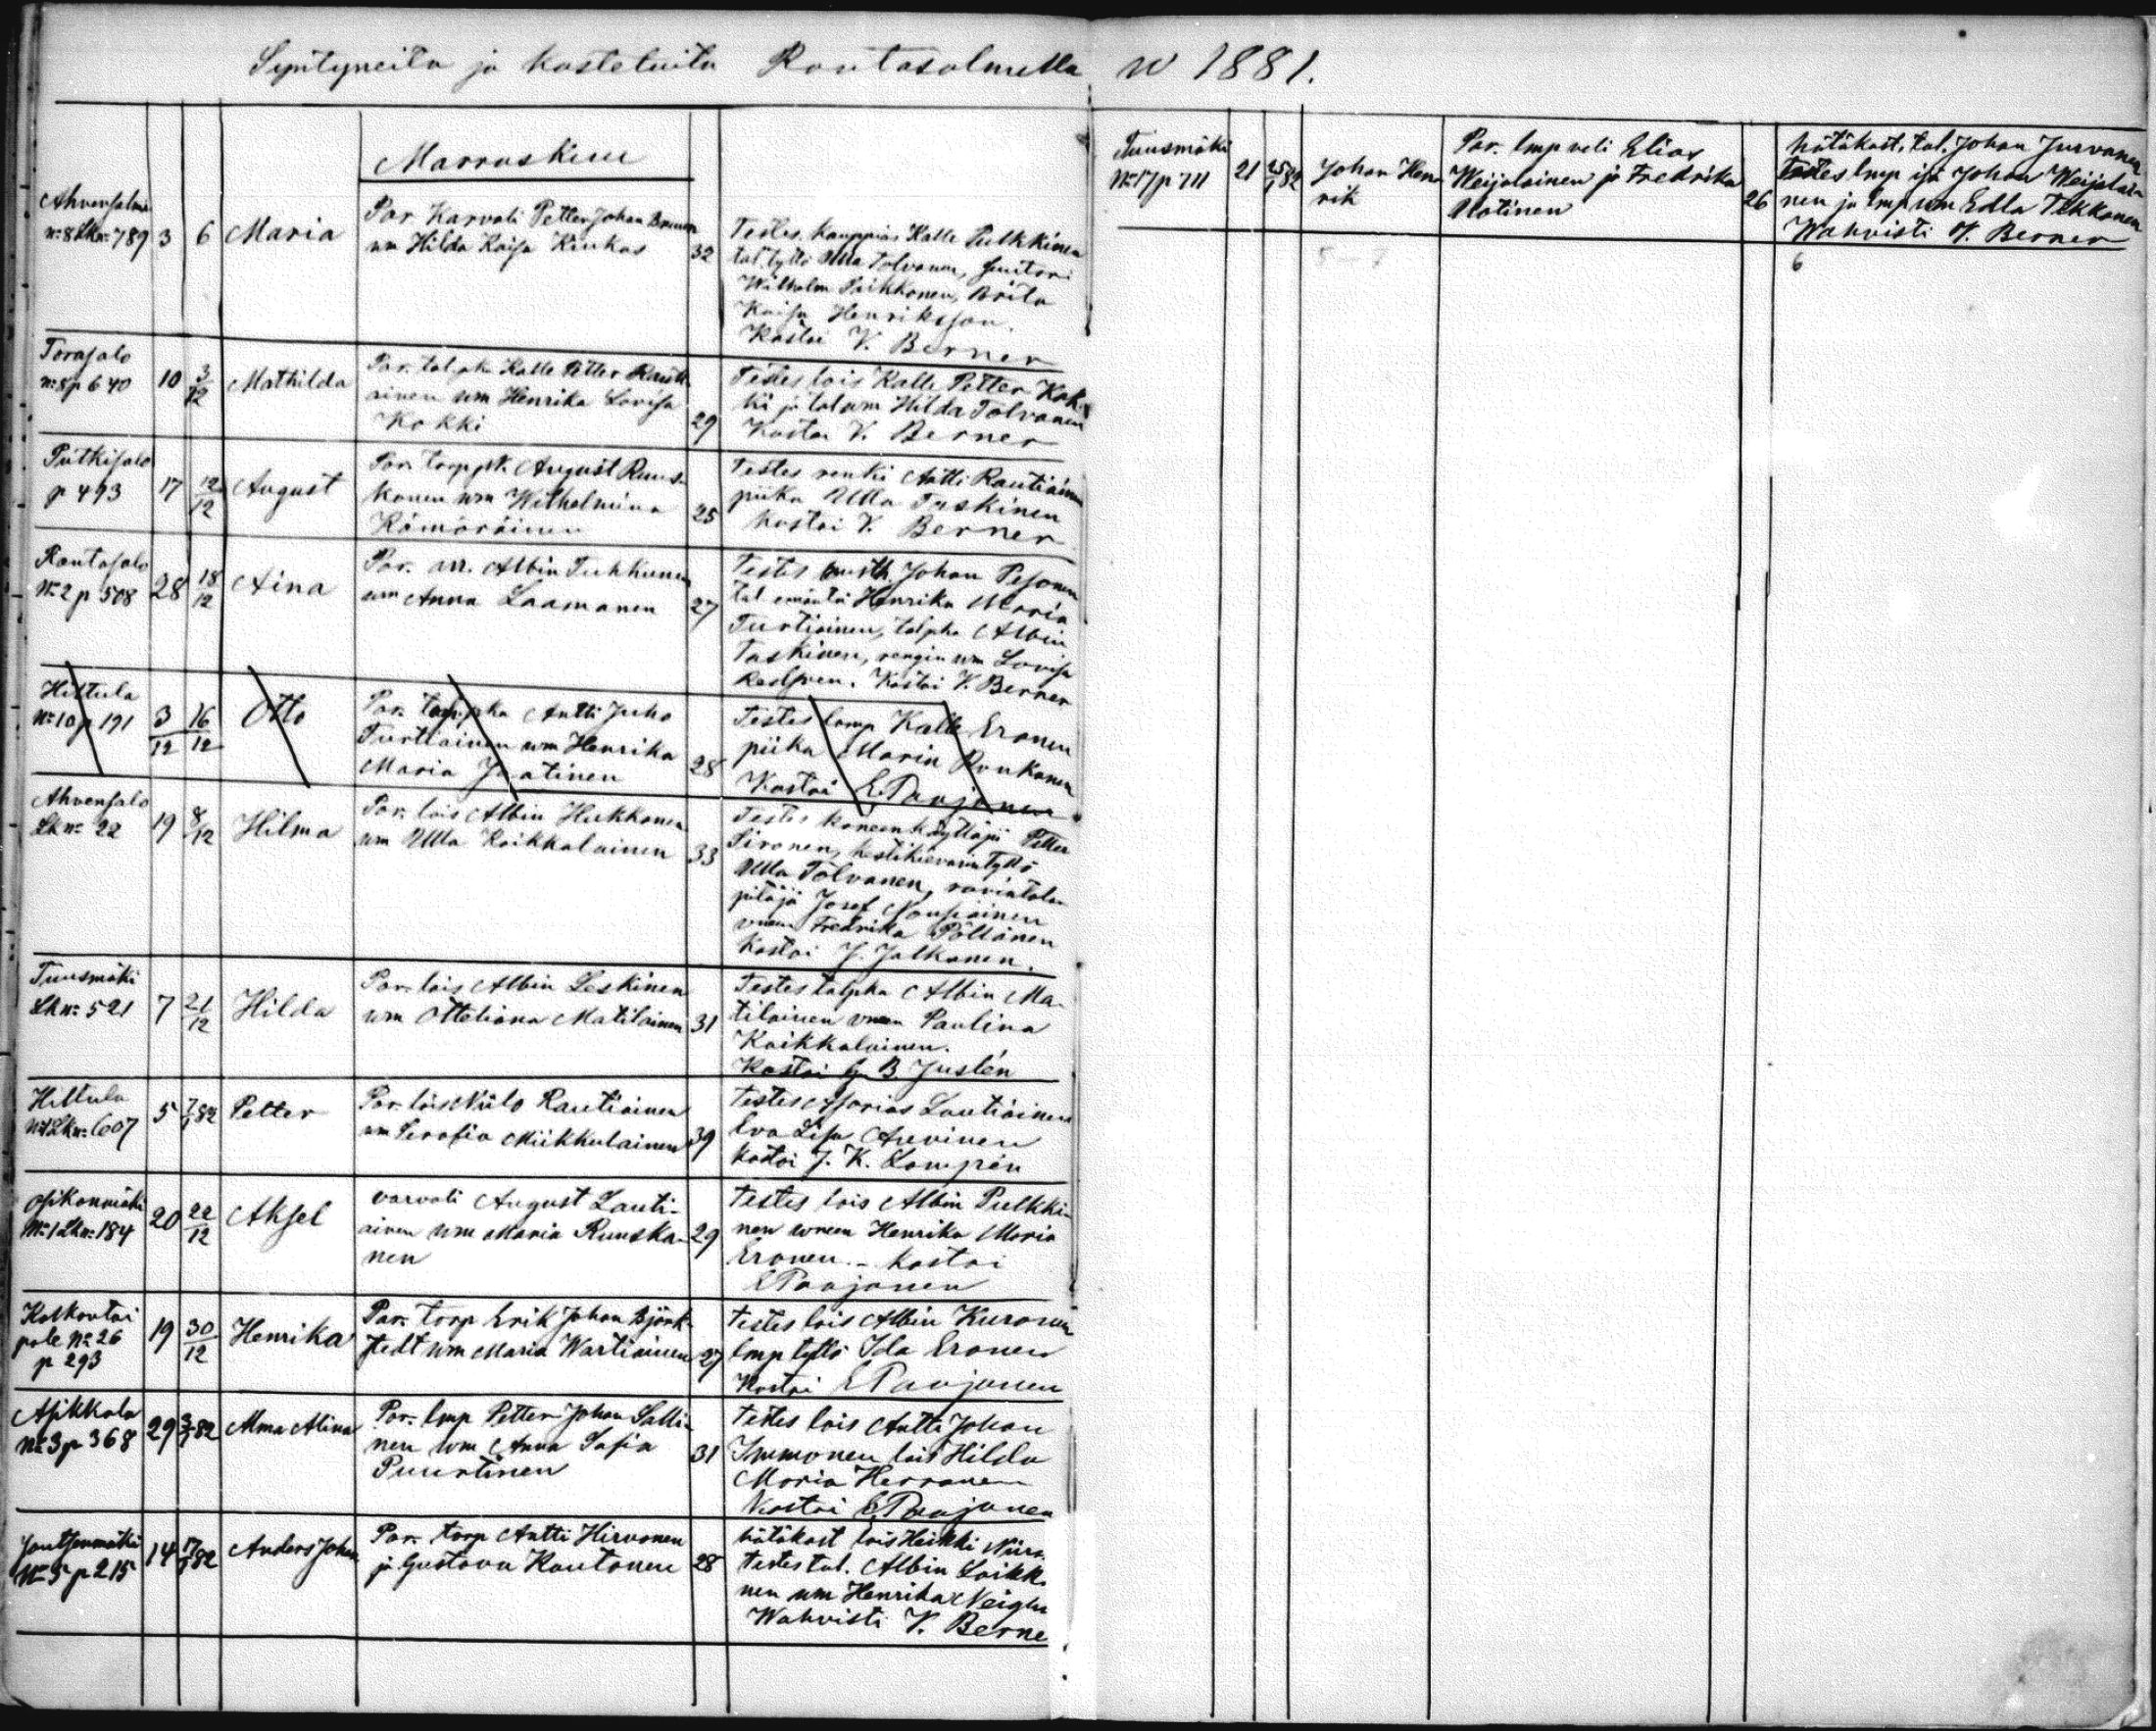 Syntyneitä ja kastetuita Rantasalmella w 1881.
Marraskuu
Ahvensalmi
N:8 Lk N: 789 3 6 Maria
Par. Karvali Petter Johan Brunn
wm Hilda Kaisa Kiukas 32
Testes. kauppias Kalle Pulkkinen
tal. tyttö Ulla Tolvanen, suutari
Wilhelm Parkkonen, Brita
Kaisa Henriksson.
Kastoi V. Berner
Torasalo
N:8 p 640 10 3/12 Mathilda
Par. talpka Kalle Petter Rauti-
ainen wm Henrika Lovisa
Kokki 29
Testes lois Kalle Petter Kok-
ki ja tal wm Hilda Tolvanen
Kastoi V. Berner
Putkisalo
p 493 17 12/12 August
Par. torp pk. August Ruus-
kanen wm Wilhelmina
Kämäräinen 25
Testes renki Antti Rautiainen
piika Ulla Taskinen
Kastoi V. Berner
Rantasalo
N:2 p 508 28 18/12 Aina
Par. arr. Albin Tuhkunen
wm Anna Laamanen 27
Testes Johan Pesonen
tal. emäntä Henrika Maria
Turtiainen, talpka Albin
Taskinen, rengin wm Lovisa
Kastoi V. Berner
Hiltula
N:10 p 191 3/12 16/12 Otto
Par. talpka Antti Juho
Turtiainen wm Henrika
Maria Jaatinen 28
Testes lamp Kalle Eronen
piika Maria Ronkanen
Kastoi E. Paajanen
Ahvensalo
Lk N: 22 19 8/12 Hilma
Par. lois Albin Hukkanen
wm Ulla Kaikkalainen 33
Testes koneenkäyttäjä Petter
Sironen, kestikievarin tyttö
Ulla Tolvanen, ravintolan
pitäjä Josef Nousiainen
vmen Fredrika Pöllänen
Kastoi J. Jalkanen.
Tuusmäki
Lk N: 521 7 21/12 Hilda
Par. lois Albin Leskinen
wm Otteliana Matilainen 31
Testes talpka Albin Ma-
tilainen vmen Paulina
Kaikkalainen.
Kastoi G. B. Juslén
Hiltula
N:1 Lk N: 607 5 7/1 82 Petter
Par. lois Niilo Rautiainen
wm Serafia Miikkulainen 39
Testes Asarias Lautiainen
Eva Lisa Arvinen
Kastoi J. K. Lampén
Osikonmäki
N:1 Lk N: 184 20 22/12 Aksel
varvali August Lauti-
ainen wm Maria Ruuska- 29
nen
Testes lois Albin Pulkki-
nen wmen Henrika Maria
Eronen. - Kastoi
E Paajanen
Koskentai
pale N:26
p 293 19 30/12 Henrika
Par. torp Erik Johan Björk-
stedt wm Maria Wartiainen 27
Testes lois Albin Kuronen
lmp tyttö Ida Eronen
Kastoi E Paajanen
Asikkala
N:3 p 368 29 3/1 82 Alma Alina
Par. lmp Petter Johan Salli-
nen wm Anna Sofia 31
Puurtinen
Testes lois Antti Johan
Immonen lois Hilda
Maria Herranen
Kastoi E. Paajanen
N:3 p 215 14 17/1 82 Anders Johan
Par. torp Antti Hirvonen
ja Gustava Kautonen 28
hätäkast lois Heikki Niira-
testes tal. Albin Laikk-
nen wm Henrika Neiglu
Wahvisti V. Berne
Tuusmäki
N:17 p 711 21 25/1 82 Johan Hen-
rik
Par. lmp veli Elias
Weijalainen ja Fredrika
Notinen 26
hätäkast. tal. Johan Jurvanen
testes lmp isä Johan Weijalai-
nen ja lmp wm Edla Tikkanen
Wahvisti V. Berner
6